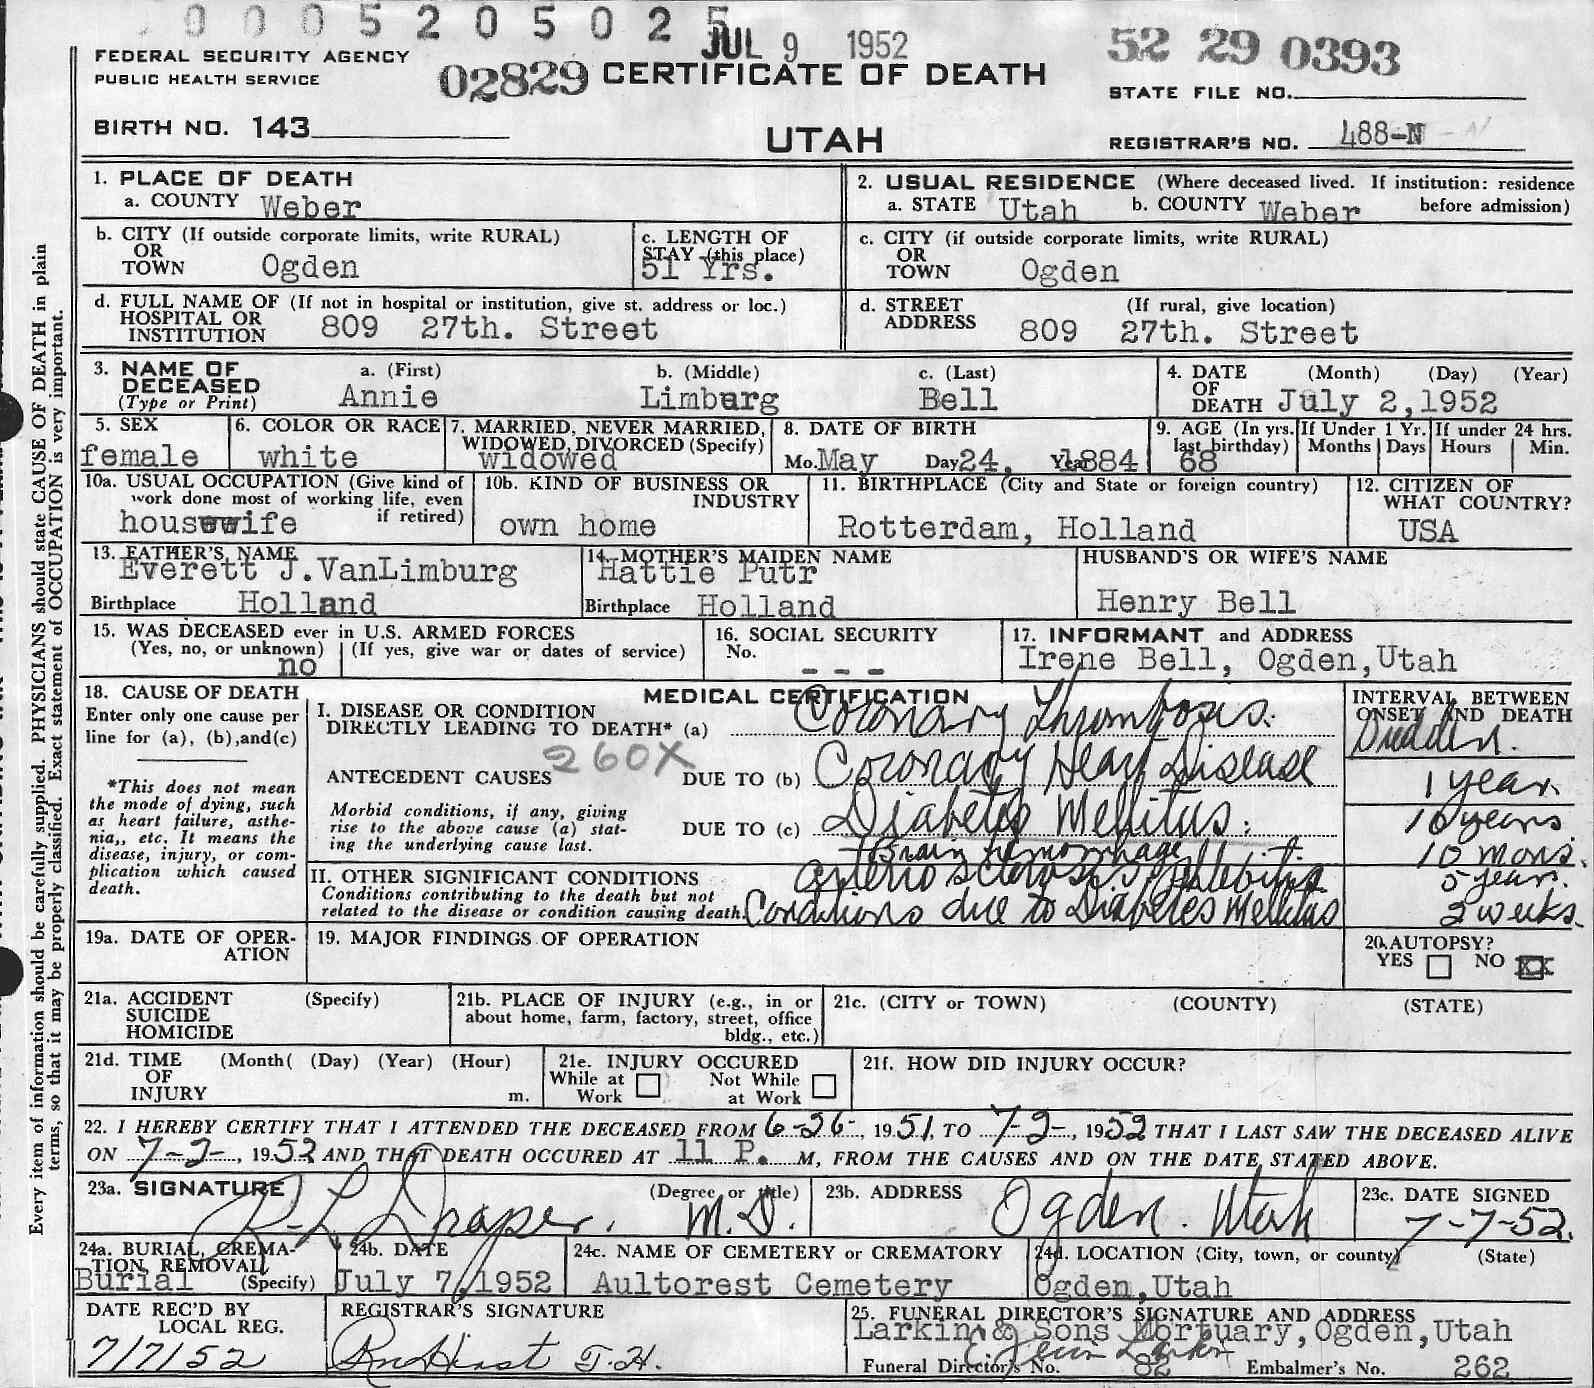 0005205025
JUL 9 1952
52 29 0393
FEDERAL SECURITY AGENCY
PUBLIC HEALTH SERVICE
02829 CERTIFICATE OF DEATH
STATE FILE NO.
BIRTH NO. 143
UTAH
REGISTRAR'S NO. 488-N
1. PLACE OF DEATH
a. COUNTY Weber
2. USUAL RESIDENCE (Where deceased lived. If institution: residence before admission)
a. STATE Utah b. COUNTY Weber
b. CITY (If outside corporate limits, write RURAL)
OR
TOWN Ogden
c. LENGTH OF
STAY (this place)
51 Yrs.
c. CITY (if outside corporate limits, write RURAL)
OR
TOWN Ogden
d. FULL NAME OF (If not in hospital or institution, give st. address or loc.)
HOSPITAL OR
INSTITUTION 809 27th. Street
d. STREET (If rural, give location)
ADDRESS 809 27th. Street
3. NAME OF
DECEASED
(Type or Print)
a. (First) b. (Middle) c. (Last)
Annie Limburg Bell
4. DATE (Month) (Day) (Year)
OF
DEATH July 2,1952
5. SEX
female
6. COLOR OR RACE
white
7. MARRIED, NEVER MARRIED,
WIDOWED, DIVORCED (Specify)
widowed
8. DATE OF BIRTH
Mo. May Day 24, Year 1884
9. AGE (In yrs. last birthday)
68
If Under 1 Yr.
Months Days
If under 24 hrs.
Hours Min.
10a. USUAL OCCUPATION (Give kind of
work done most of working life, even
if retired)
housewife
10b. KIND OF BUSINESS OR
INDUSTRY
own home
11. BIRTHPLACE (City and State or foreign country)
Rotterdam, Holland
12. CITIZEN OF
WHAT COUNTRY?
USA
13. FATHER'S NAME
Everett J.VanLimburg
Birthplace Holland
14. MOTHER'S MAIDEN NAME
Hattie Putr
Birthplace Holland
HUSBAND'S OR WIFE'S NAME
Henry Bell
15. WAS DECEASED ever in U.S. ARMED FORCES
(Yes, no, or unknown) (If yes, give war or dates of service)
no
16. SOCIAL SECURITY
No. - - -
17. INFORMANT and ADDRESS
Irene Bell, Ogden,Utah
18. CAUSE OF DEATH
Enter only one cause per
line for (a), (b),and(c)
*This does not mean
the mode of dying, such
as heart failure, asthe-
nia,, etc. It means the
disease, injury, or com-
plication which caused
death.
MEDICAL CERTIFICATION
INTERVAL BETWEEN
ONSET AND DEATH
I. DISEASE OR CONDITION
DIRECTLY LEADING TO DEATH* (a) Coronary Thrombosis. Sudden.
260X
ANTECEDENT CAUSES DUE TO (b) Coronary Heart Disease 1 year.
Morbid conditions, if any, giving
rise to the above cause (a) stat-
ing the underlying cause last.
DUE TO (c) Diabetes Mellitus. 10 years.
Brain hemorrhage 10 mons.
II. OTHER SIGNIFICANT CONDITIONS
Conditions contributing to the death but not
related to the disease or condition causing death.
Arterio sclerosis, Phlebitis 5 years.
Conditions due to Diabetes Mellitus 2 weeks.
19a. DATE OF OPER-
ATION
19. MAJOR FINDINGS OF OPERATION
20. AUTOPSY?
YES NO XX
21a. ACCIDENT (Specify)
SUICIDE
HOMICIDE
21b. PLACE OF INJURY (e.g., in or
about home, farm, factory, street, office
bldg., etc.)
21c. (CITY or TOWN) (COUNTY) (STATE)
21d. TIME (Month( (Day) (Year) (Hour)
OF
INJURY m.
21e. INJURY OCCURED
While at Work Not While at Work
21f. HOW DID INJURY OCCUR?
22. I HEREBY CERTIFY THAT I ATTENDED THE DECEASED FROM 6-26-, 1951, TO 7-2-, 1952 THAT I LAST SAW THE DECEASED ALIVE
ON 7-2-, 1952 AND THAT DEATH OCCURED AT 11 P. M, FROM THE CAUSES AND ON THE DATE STATED ABOVE.
23a. SIGNATURE (Degree or title)
R. L. Draper. M.D.
23b. ADDRESS
Ogden. Utah
23c. DATE SIGNED
7-7-52.
24a. BURIAL, CREMA-
TION REMOVAL
(Specify)
Burial
24b. DATE
July 7, 1952
24c. NAME OF CEMETERY or CREMATORY
Aultorest Cemetery
24d. LOCATION (City, town, or county) (State)
Ogden,Utah
DATE REC'D BY
LOCAL REG.
7/7/52
REGISTRAR'S SIGNATURE
25. FUNERAL DIRECTOR'S SIGNATURE AND ADDRESS
Larkin & Sons Mortuary, Ogden,Utah
Funeral Director's No. 82 Embalmer's No. 262
Every item of information should be carefully supplied. PHYSICIANS should state CAUSE OF DEATH in plain
terms, so that it may be properly classified. Exact statement of OCCUPATION is very important.